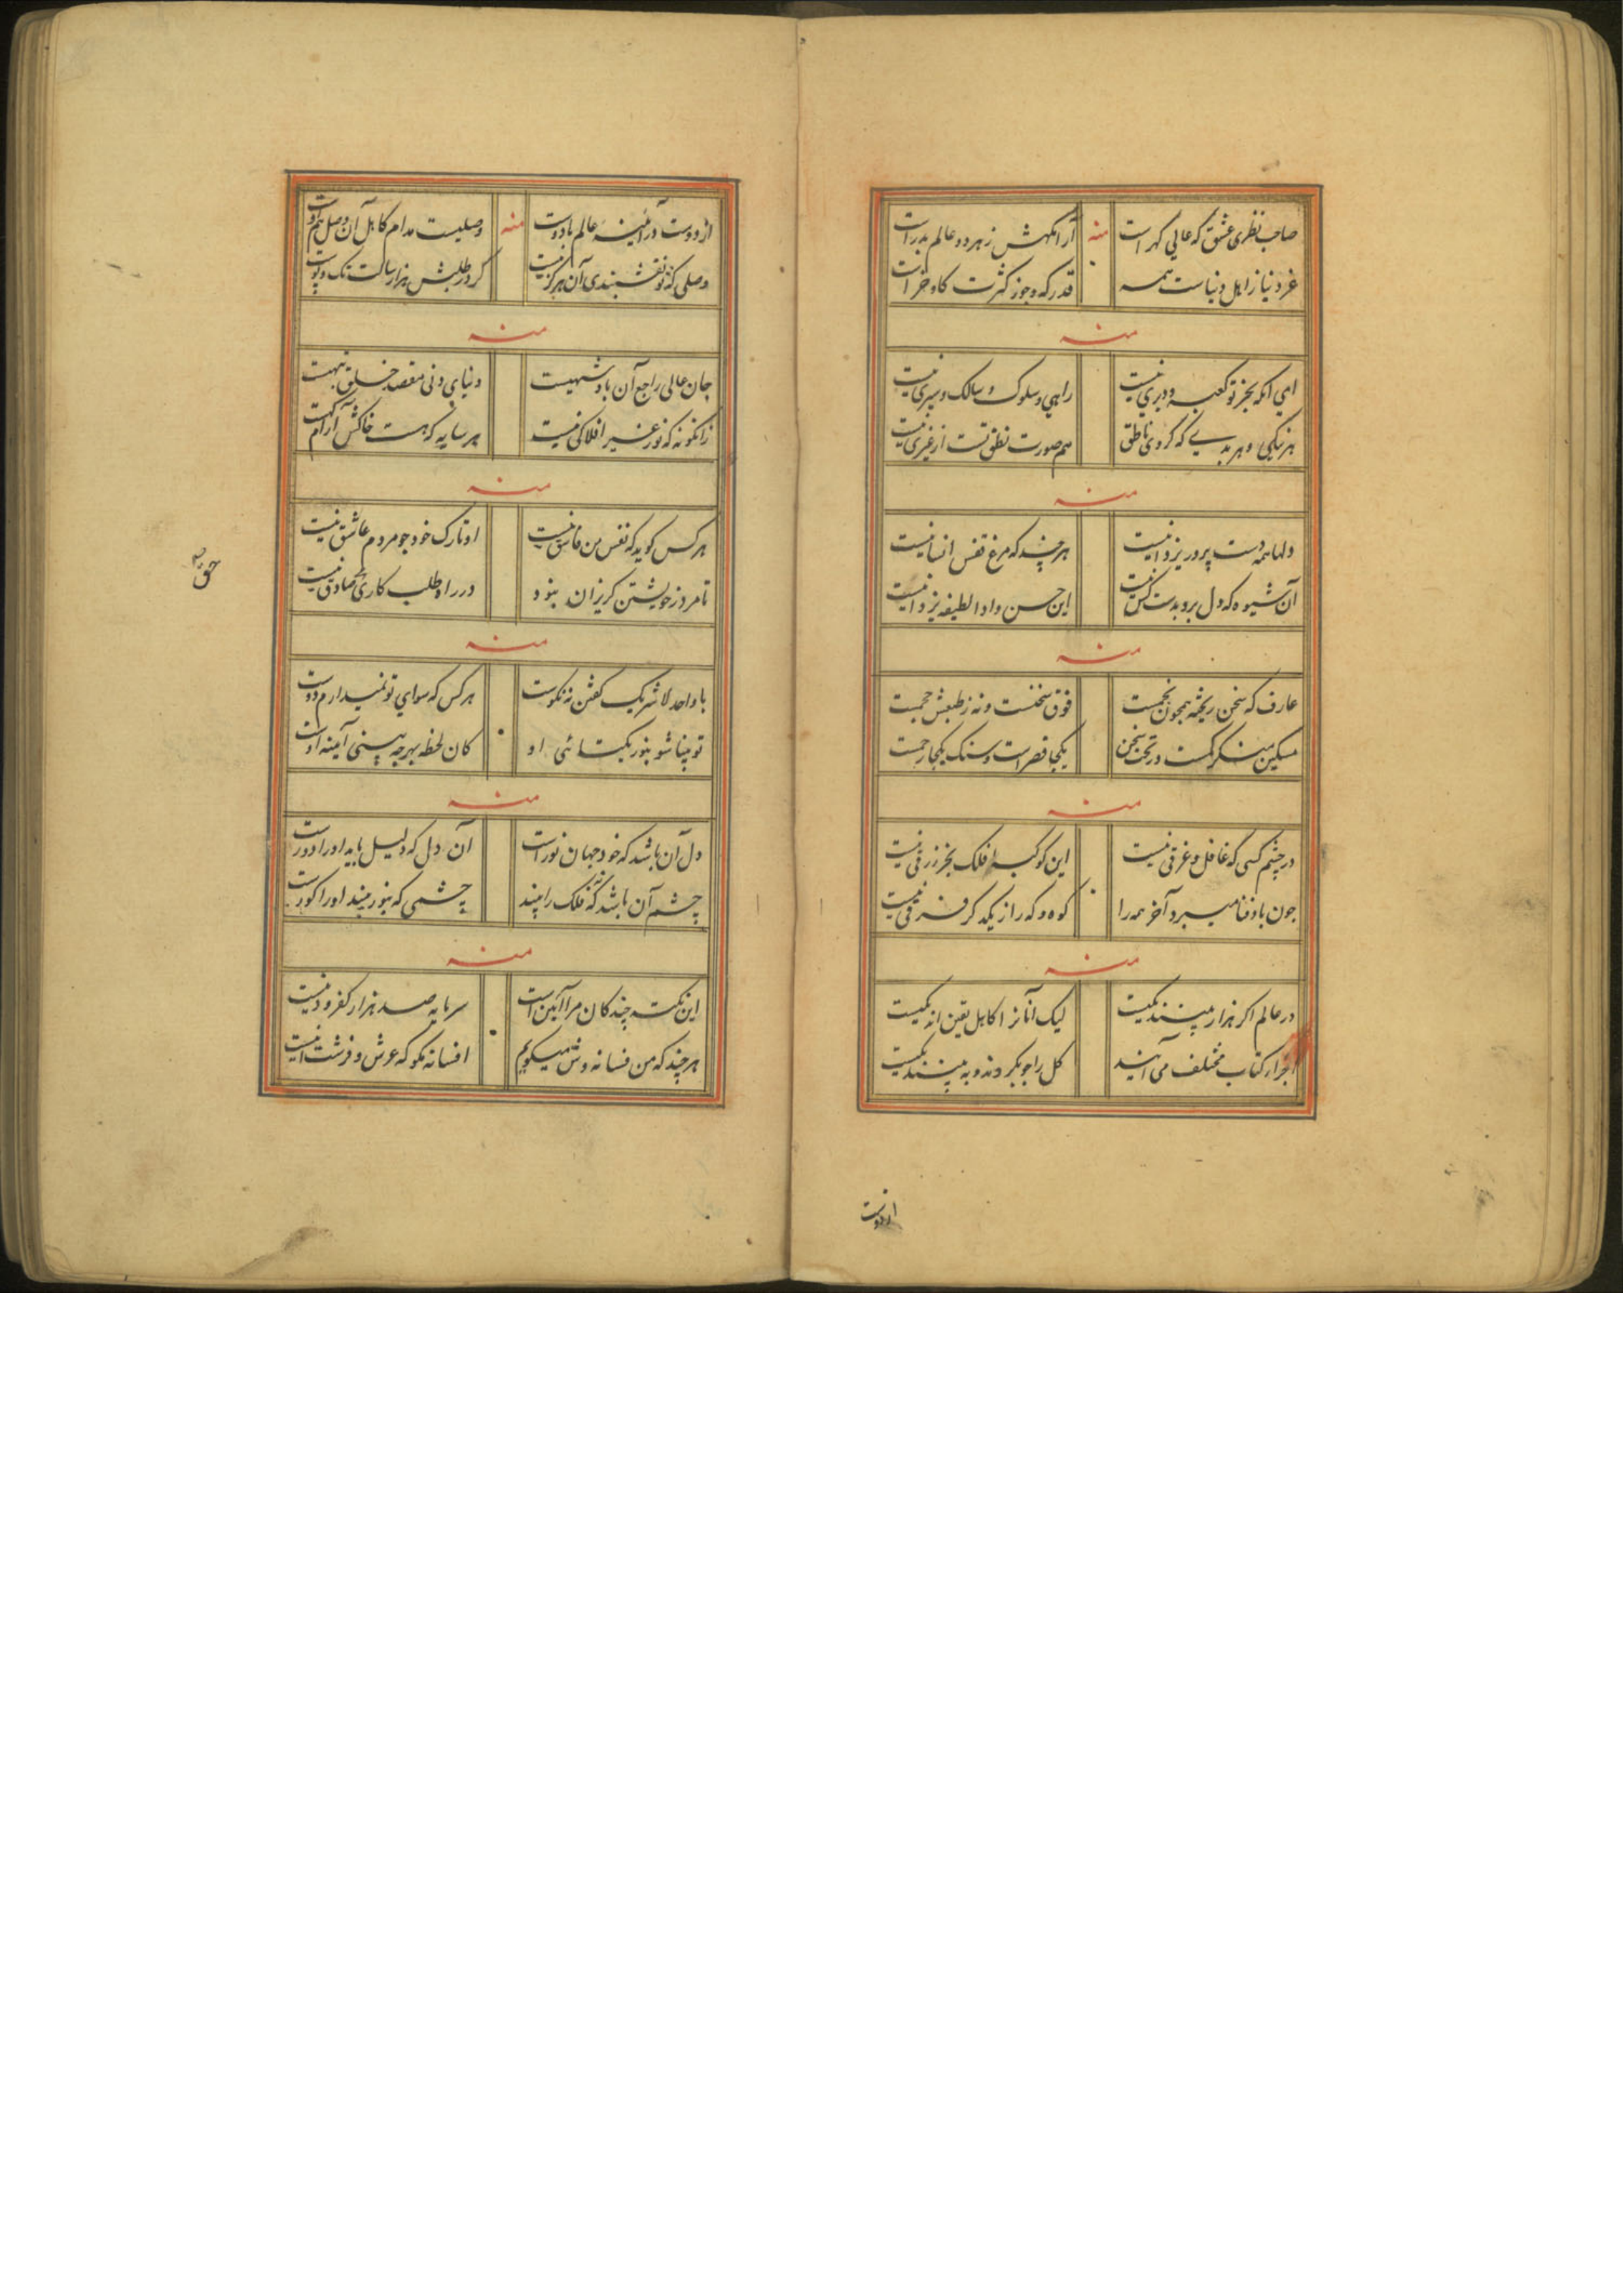 صاحب نظری عشق که عالی گهر است
منه
آرامگهش ز هر دو عالم بدر است
غر دنیا ز اهل دنیاست همه
قدر که و جوز کثرت کاو خر است
منه
ای آنکه بجز تو کعبه و دیری نیست
راهی و سلوک و سالک و سیری نیست
هر نیکی و هر بدی که کردی ناطق
هم صورت نطق تست از غیری نیست
منه
دلها همه دست پرور یزدانیست
هر چند که مرغ قفس انسانیست
آن شیوه که دل برد بدست کس نیست
این حسن و ادا لطیفه یزدانیست
منه
عارف که سخن ریخته همچون نجمست
فوق سخنست و نه ز طبعش حجمست
مسکین منکر کمست در تحت سخن
یکجا قصر است و سنک یکجا رجمست
منه
در چشم کسی که غافل و غرقی نیست
این کوکبه فلک بجز زرقی نیست
جون باد فنا میبرد آخر همه را
کوه و که را ز یکدکر فرقی نیست
منه
در عالم اکر هزار بینند یکیست
لیک آنانرا که اهل یقین اند یکیست
اجزاء کتاب مختلف می آیند
کل را جو بکردند و به بینند یکیست
از دوست
از دوست در آئینه عالم با دوست
منه
وصلیست مدام کاهل آن وصل هم اوست
وصلی که تو نقشبندی آن هرکز نیست
کر در طلبش هزار سالت تک و پوست
منه
جان عالی راجع آن بادشهیست
دنیای دنی مقصد خلق تبهیست
زانکونه که نور غیر افلاکی نیست
هر سایه که هست خاکش آرامکهیست
منه
هر کس کوید که نفس من فاسق نیست
او تارک خود جو مردم عاشق نیست
تا مرد ز خویشتن کریزان نبود
در راه طلب کار وی صادق نیست
منه
با واحد لا شریک کفتن نه نکوست
هر کس که سوای تو نمیدارم دوست
تو بینا شو بنور یکتائی او
کان لحظه بهرجه بینی آئینه اوست
منه
دل آن باشد که خود جهان نور است
آن دل که دلیل باید او را دور است
چشم آن باشد که نه فلک را بیند
چشمی که بنور بیند او را کور است
منه
این نکته چند کان مرا آئین است
سرمایه صد هزار کفر و دین است
هر چند که من فسانه وش میکویم
افسانه مکو که عرش و فرشت اینست